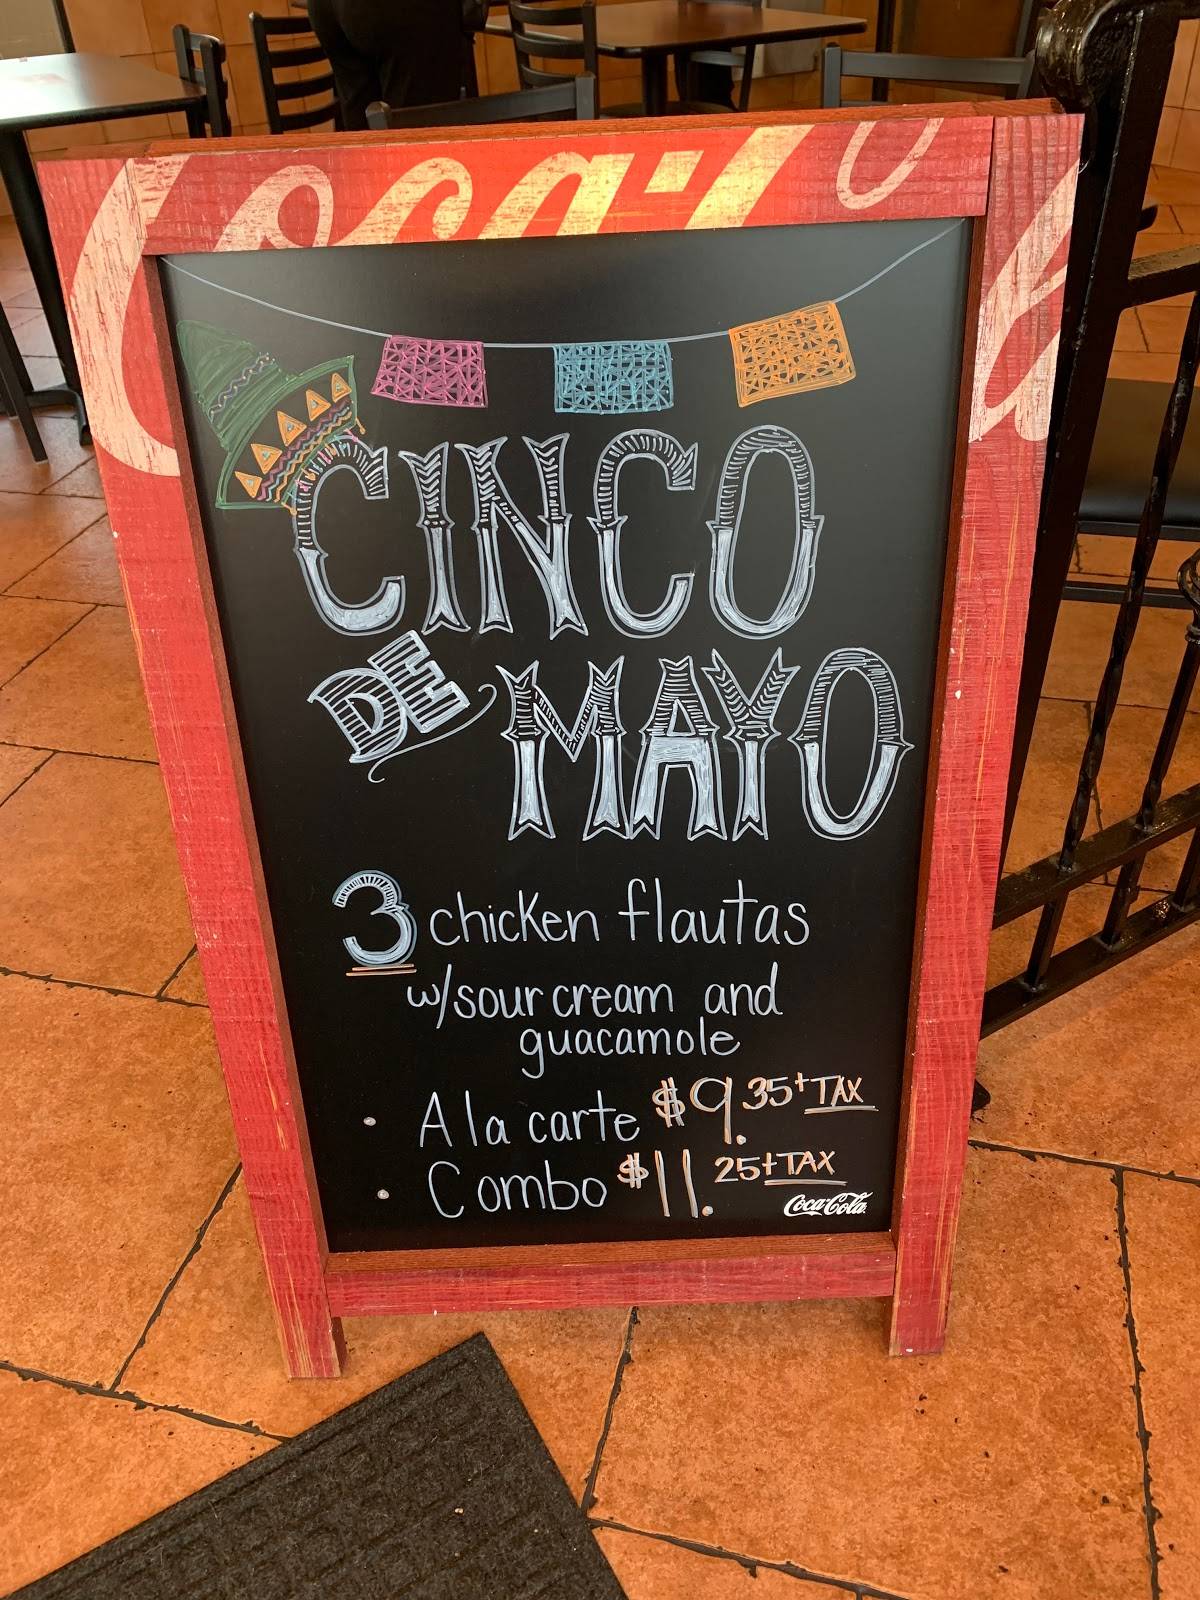 Coca-Cola
CINCO
DE MAYO
3 chicken flautas
w/sour cream and
guacamole
· A la carte $9.35+TAX
· Combo $11.25+TAX
Coca-Cola